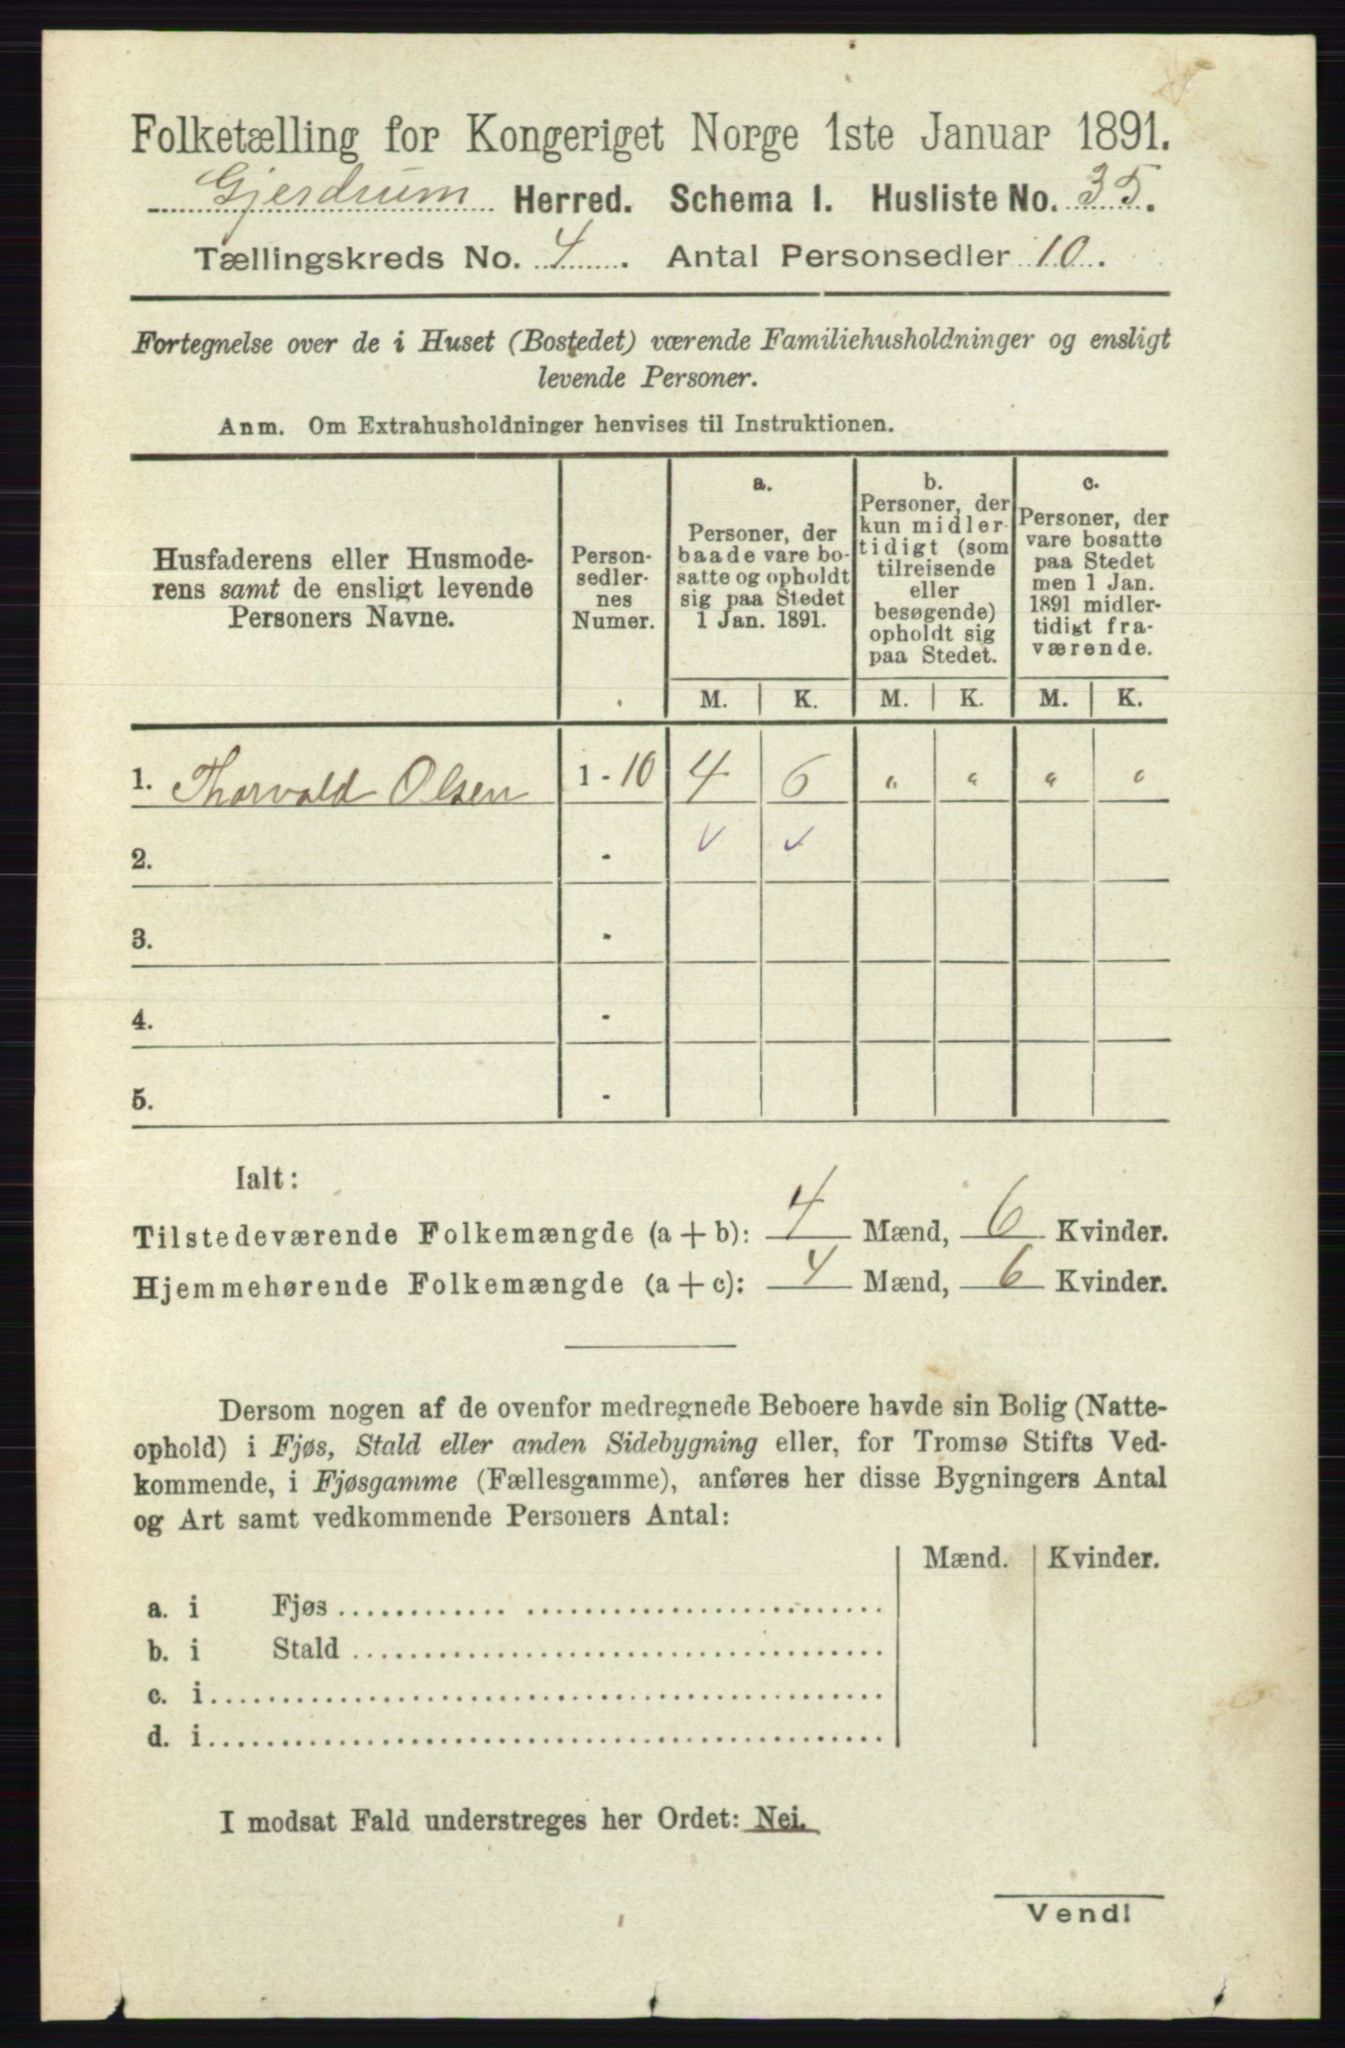 Folketælling for Kongeriget Norge 1ste Januar 1891.
Gjerdrum Herred. Schema I. Husliste No. 35.
Tællingskreds No. 4. Antal Personsedler 10.
Fortegnelse over de i Huset (Bostedet) værende Familiehusholdninger og ensligt
levende Personer.
Anm. Om Extrahusholdninger henvises til Instruktionen.
Husfaderens eller Husmode-
rens samt de ensligt levende
Personers Navne.
Person-
sedler-
nes
Numer.
a.
Personer, der
baade vare bo-
satte og opholdt
sig paa Stedet
1 Jan. 1891.
b.
Personer, der
kun midler-
tidigt (som
tilreisende
eller
besøgende)
opholdt sig
paa Stedet.
c.
Personer, der
vare bosatte
paa Stedet
men 1 Jan.
1891 midler-
tidigt fra-
værende.
M. K. M. K. M. K.
1. Thorvald Olsen 1 - 10 4 6 " " " "
2. - ✓ ✓
3. -
4. -
5. -
Ialt:
Tilstedeværende Folkemængde (a + b): 4 Mænd, 6 Kvinder.
Hjemmehørende Folkemængde (a + c): 4 Mænd, 6 Kvinder.
Dersom nogen af de ovenfor medregnede Beboere havde sin Bolig (Natte-
ophold) i Fjøs, Stald eller anden Sidebygning eller, for Tromsø Stifts Ved-
kommende, i Fjøsgamme (Fællesgamme), anføres her disse Bygningers Antal
og Art samt vedkommende Personers Antal:
Mænd. Kvinder.
a. i Fjøs
b. i Stald
c. i
d. i
I modsat Fald understreges her Ordet: Nei.
Vend!